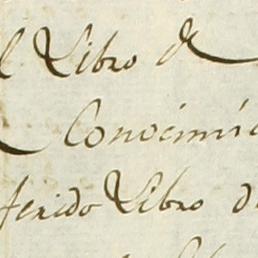 l Libro de
Conocimie
ferido Libro d